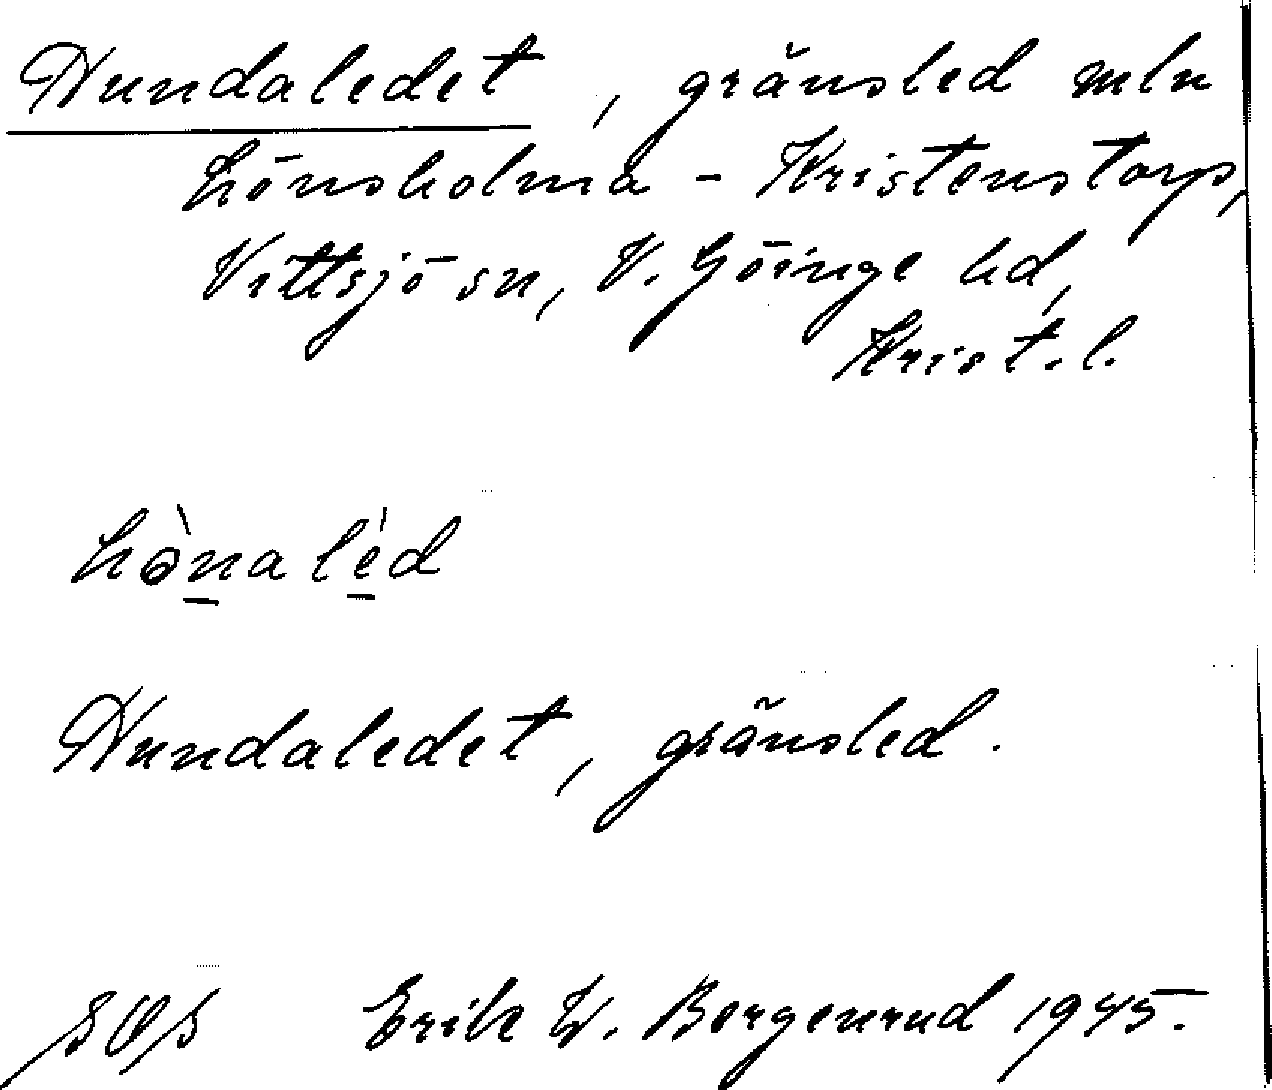 Hundaledet, gränsled mln
hönsholma - Kristenstorps,
Vittsjö sn, V. Göinge hd,
Krist. l.
hònaléd
Hundaledet, gränsled.
SOS Erik W. Bergenrud 1945.